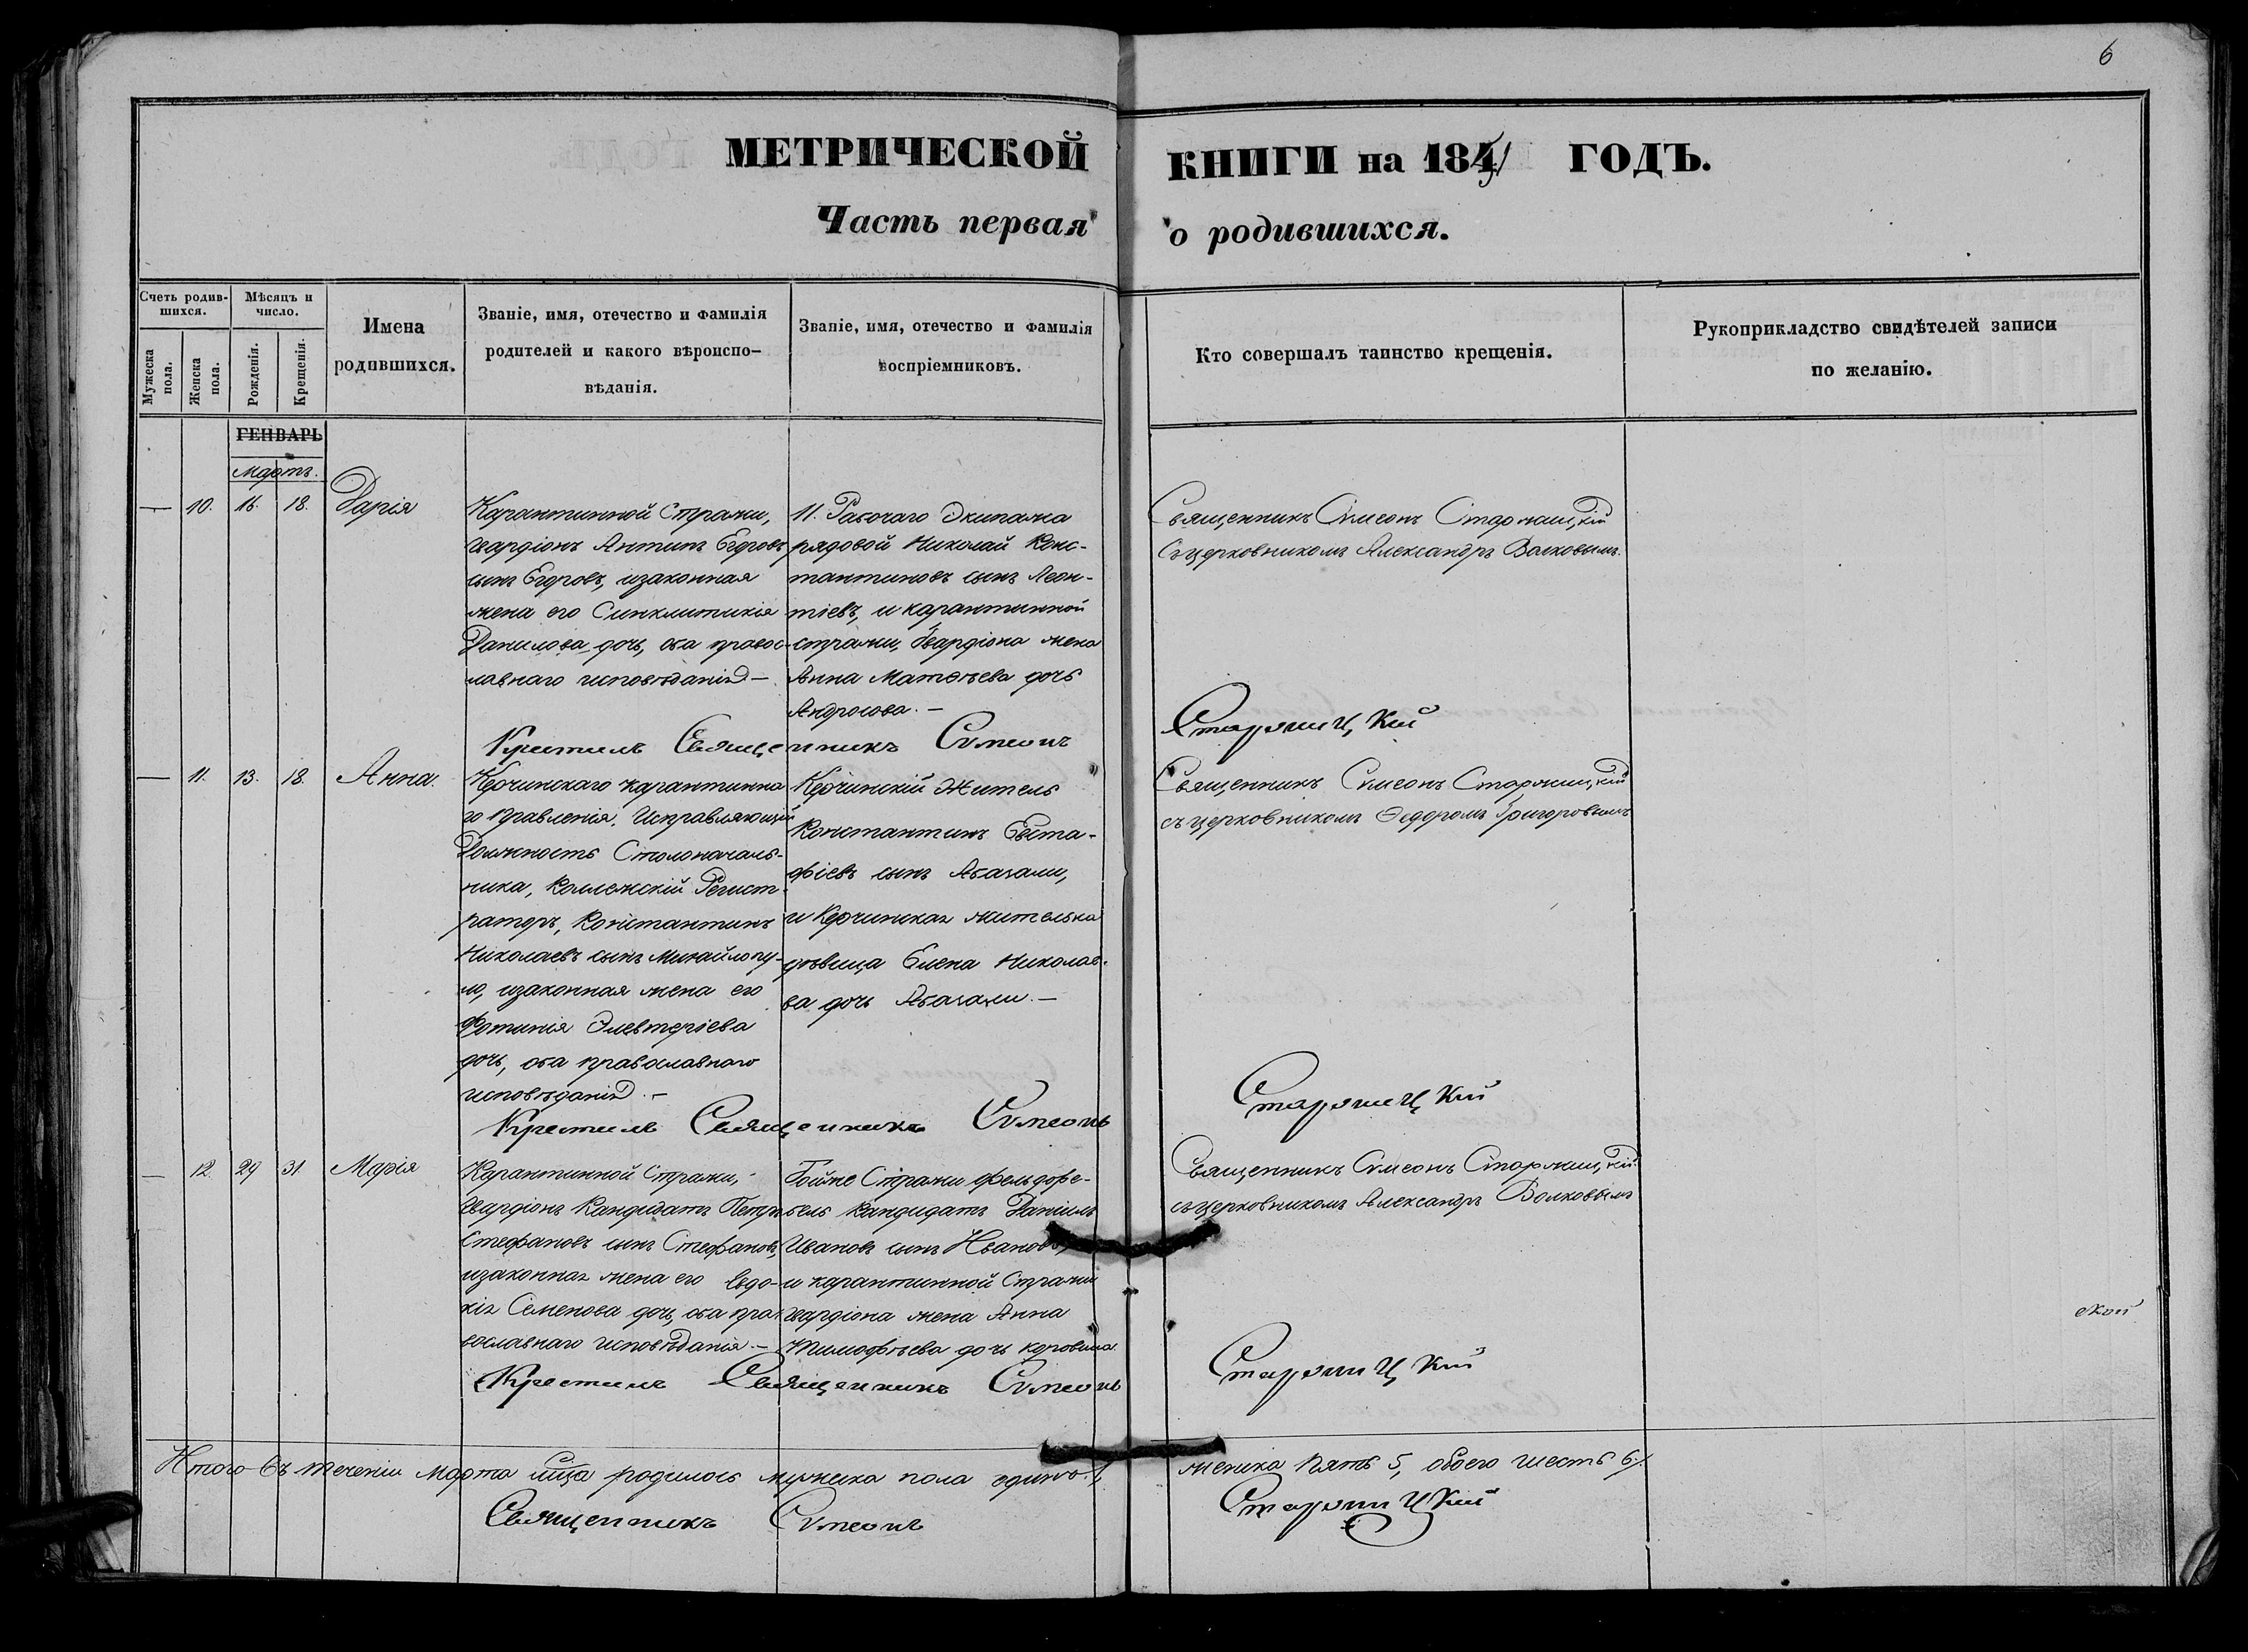 6
МЕТРИЧЕСКОЙ КНИГИ на 1851 ГОДЪ.
Часть первая о родившихся.
Счетъ родив-
шихся.
Мужеска
пола.
Женска
пола.
Мѣсяцъ и
число.
Рожденія.
Крещенія.
Имена
родившихся.
Званіе, имя, отечество и фамилія
родителей и какого вѣроиспо-
вѣданія.
Званіе, имя, отечество и фамилія
воспріемниковъ.
Кто совершалъ таинство крещенія.
Рукоприкладство свидѣтелей записи
по желанію.
ГЕНВАРЬ
Мартъ.
— 10. 16. 18. Дарія
Карантинной Стражи,
гвардіонъ Антипъ Егоровъ
сынъ Егоровъ, изаконная
жена его Синклитикія
Данилова дочь, оба правос-
лавнаго исповѣданія —
11. Рабочаго Экипажа
рядовой Николай Конс-
тантиновъ сынъ Леон-
тіевъ, и карантинной
стражи, Гвардіона жена
Анна Матвѣева дочь
Андросова. —
Священникъ Симеонъ Старжицкій
съ церковникомъ Александръ Волковымъ.
Крестилъ Священникъ Симеонъ Старжицкій
— 11. 13. 18. Анна.
Керчинскаго карантинна
го правленія, Исправляющій
Должность Столоначаль-
ника, Коллежскій Регист-
раторъ, Константинъ
Николаевъ сынъ Михайлопу-
ло, изаконная жена его
Фотинія Элевтеріева
дочь, оба православнаго
исповѣданія. —
Керчинскій Житель
Константинъ Евста-
фіевъ сынъ Абазали,
и Керчинская жителька
дѣвица Елена Николае-
ва дочь Абазали. —
Священникъ Симеонъ Старжицкій
съ церковникомъ Федоромъ Григоровымъ
Крестилъ Священникъ Симеонъ Старжицкій
— 12. 29 31. Марія
Карантинной Стражи,
Гвардіонъ Кандидатъ Петръ
Стефановъ сынъ Стефановъ,
изаконная жена его Евдо-
кія Семенова дочь, оба пра-
вославнаго исповѣданія. —
Тойже Стражи фельдфе-
бель кандидатъ Даніилъ
Ивановъ сынъ Ивановъ,
и карантинной Стражи
гвардіона жена Анна
Тимофѣева дочь Коровина.
Священникъ Симеонъ Старжицкій
съ церковникомъ Александръ Волковымъ
Крестилъ Священникъ Симеонъ Старжицкій
ской
Итого въ теченіи Марта мца родилось мужеска пола едино 1, женска пять 5, обоего шесть 6.
Священникъ Симеонъ Старжицкій